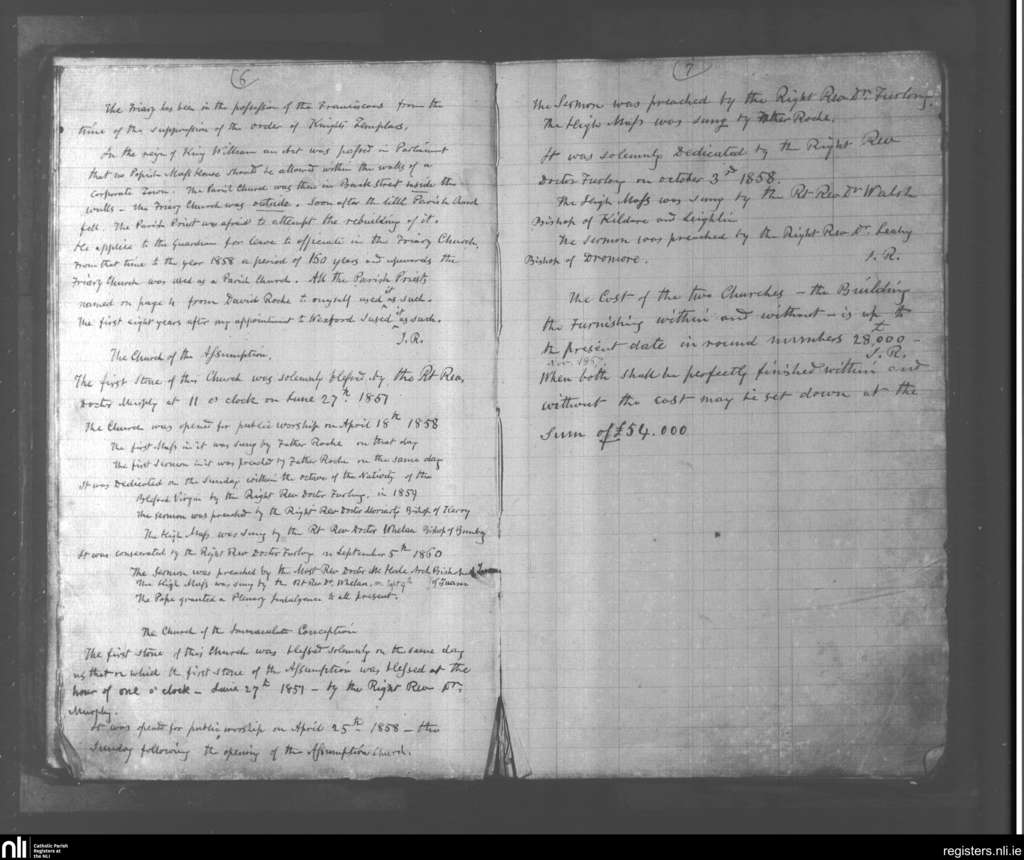 6
The Friary has been in the possession of the Franciscans from the
time of the suppression of the order of Knights Templars.
In the reign of King William an Act was passed in Parliament
that no Popish Mass House should be allowed within the walls of a
Corporate Town. The Parish Church was then in Back street inside the
walls – the Friary Church was outside. Soon after the little Parish Church
fell. The Parish Priest was afraid to attempt the rebuilding of it.
He applied to the Guardian for leave to officiate in the Friary Church.
From that time to the year 1858 a period of 160 years and upwards the
Friary Church was used as a Parish Church. All the Parish Priests
named on page 4 from David Roche to myself used it as such.
The first eight years after my appointment to Wexford I used it as such.
J.R.
The Church of the Assumption.
The first stone of this Church was solemnly blessed by the Rt Rev.
Doctor Murphy at 11 o'clock on June 27th 1851
The Church was opened for public worship on April 18th 1858
The first Mass in it was sung by Father Roche on that day
The first Sermon in it was preached by Father Roche on the same day
It was Dedicated on the Sunday within the octave of the Nativity of the
Blessed Virgin by the Right Rev Doctor Furlong, in 1859
The sermon was preached by the Right Rev Doctor Moriarty Bishop of Kerry
The High Mass was sung by the Rt Rev Doctor Whelan Bishop of Bombay
It was consecrated by the Right Rev Doctor Furlong on September 5th 1860
The Sermon was preached by the Most Rev Doctor Mc Hale Arch Bishop of Tuam
The High Mass was sung by the Rt Rev Dr. Whelan, on of Tuam
The Pope granted a Plenary Indulgence to all present.
The Church of the Immaculate Conception
The first stone of this Church was blessed solemnly on the same day
as that on which the first stone of the Assumption was blessed at the
hour of one o'clock – June 27th 1851 – by the Right Rev Dr.
Murphy.
It was opened for public worship on April 25th 1858 – the
Sunday following the opening of the Assumption Church.
7
The Sermon was preached by the Right Rev Dr. Furlong.
The High Mass was sung by Father Roche.
It was solemnly Dedicated by the Right Rev
Doctor Furlong on October 3rd 1858.
The High Mass was sung by the Rt Rev Dr Walsh
Bishop of Kildare and Leighlin
The Sermon was preached by the Right Rev Dr. Leahy
Bishop of Dromore.
J. R.
The Cost of the two Churches – the Building
the Furnishing within and without – is up to
the present date in round numbers 28,000 –
J. R.
When both shall be perfectly finished within and
without the cost may be set down at the
Sum of £54.000
nli
Catholic Parish
Registers at
the NLI
registers.nli.ie